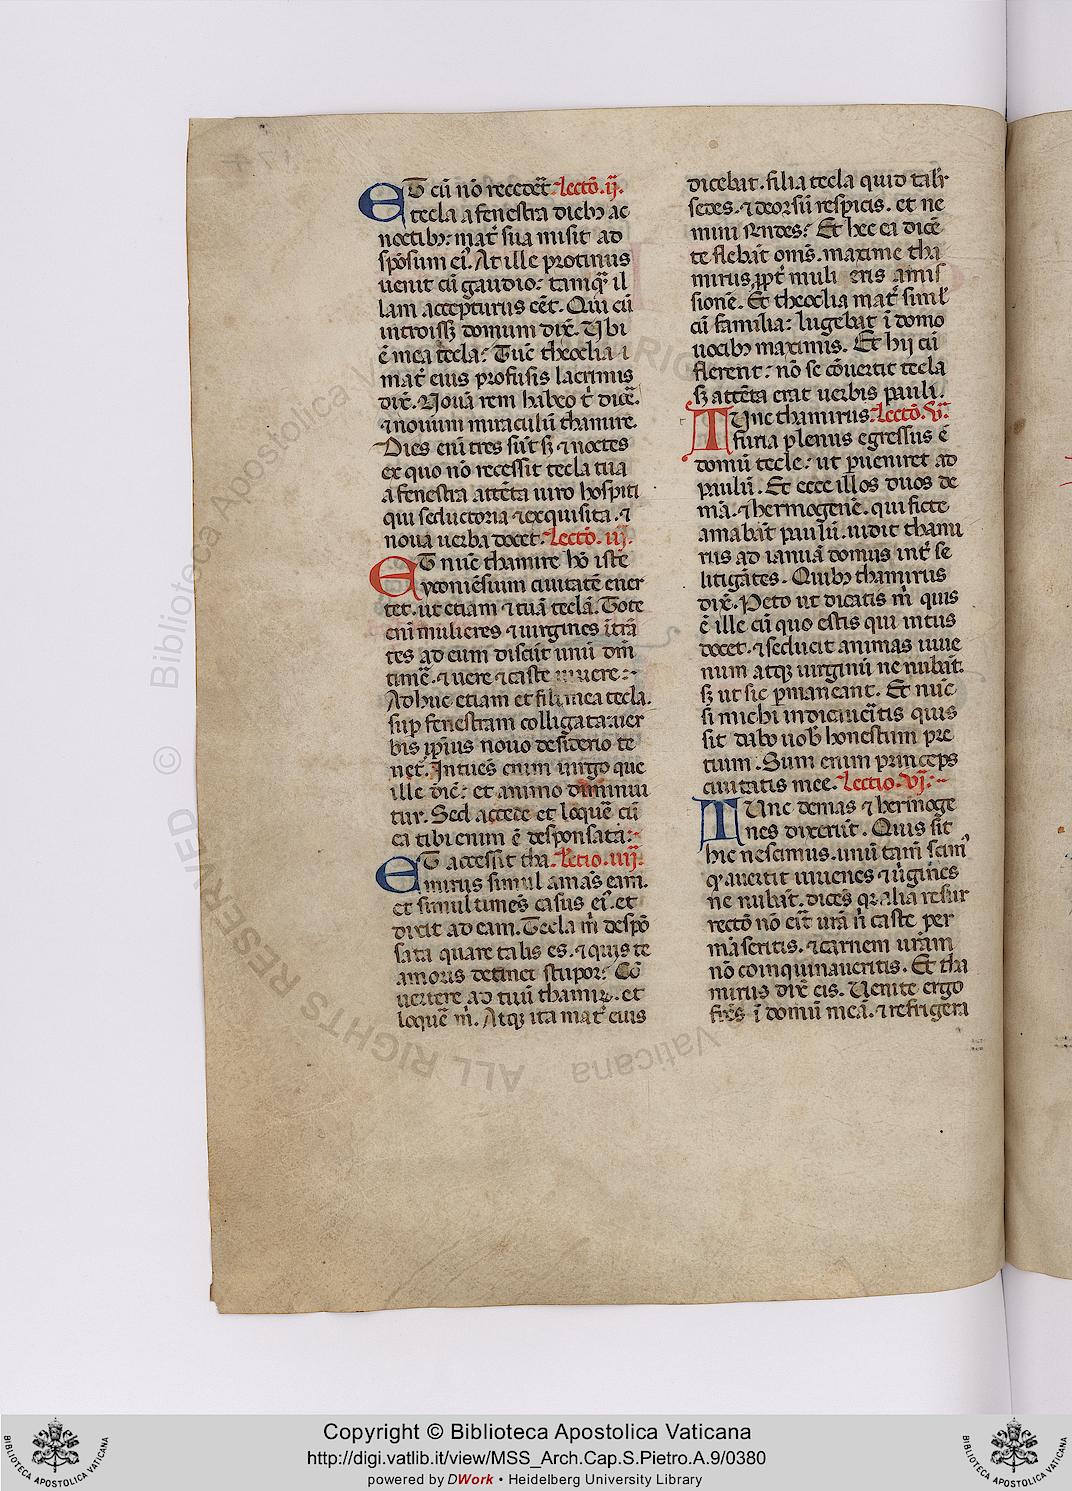 ET cū nō recedet̄. Lectō. ij.
tecla a fenestra dieb᷒ ac
noctib᷒: mat̄ sua misit ad
spōsum ei᷒. At ille protinus
uenit cū gaudio: tamqᷓ il
lam accepturus eēt. Qui cū
introissꝫ domum dix̄. Vbi
ē mea tecla: Tūc theoclia
mat̄ eius profusis lacrimis
dix̄. Nouā rem habeo t̄ dicē.
⁊ nouum miraculū thamire.
Dies enī tres sūt sꝫ ⁊ noctes
ex quo nō recessit tecla tua
a fenestra attēta uiro hospiti
qui seductoria ⁊ exquisita. ⁊
noua uerba docet. Lectō. iij.
ET nūc thamire hō iste
yconiēsium ciuitatē euer
tet. ut etiam ⁊ tuā teclā. Tote
enī mulieres ⁊ uirgines ītrā
tes ad eum discūt unū dm̄
timē. ⁊ uere ⁊ caste uiuere:
Adhuc etiam et filia mea tecla.
suꝑ fenestram colligata: uer
bis ipsius nouo desiderio te
net̄. Intues enim uirgo que
ille dic̄: et animo diminui
tur. Sed accede et loquē cū
ea tibi enim ē desponsata:
ET accessit tha Lectio. iiij.
mirus simul amās eam.
et simul timēs casus ei᷒. et
dixit ad eam. Tecla m̄ despō
sata quare talis es. ⁊ quis te
amoris detinet stupor: Cō
uertere ad tuū thamirꝫ. et
loquē m̄. Atqꝫ ita mat̄ eius
dicebat. filia tecla quid talit̄
sedes. ⁊ deorsū respicis. et ne
mini rn̄des: Et hec ea dicē
te flebāt oms̄. maxime tha
mirus ꝓpt̄ mulieris amis
sionē. Et theoclia mat̄ simil᷒
cū familia: lugebat ī domo
uocib᷒ maximis. Et hij cū
flerent: nō se cōuertit tecla
sꝫ attēta erat uerbis pauli.
TVnc thamirus Lectō. v.
furia plenus egressus ē
domū tecle: ut ꝑueniret ad
paulū. Et ecce illos duos de
mā. ⁊ hermogenē. qui ficte
amabāt paulū. uidit thami
rus ad ianuā domus int̄ se
litigātes. Quib᷒ thamirus
dix̄. Peto ut dicatis m̄ quis
ē ille cū quo estis qui intus
docet. ⁊ seducit animas iuue
num atqꝫ uirginū ne nubāt.
sꝫ ut sic ꝑmaneant. Et nūc
si michi indicauei̅tis quis
sit dabo uob̄ honestum pre
tium. Sum enim princeps
ciuitatis mee. Lectio. vj.
TVnc demas ⁊ hermoge
nes dixerūt. Quis sit
hic nescimus. unū tam̄ scim᷒
qꝫ auertit iuuenes ⁊ ūgines
ne nubāt. dicēs qꝫ alia resur
rectō nō eit̄ urā n̄ caste per
māseritis. ⁊ carnem urām
nō coinquinaueritis. Et tha
mirus dix̄ eis. Venite ergo
fr̄es ī domū meā. ⁊ refrigera
Copyright © Biblioteca Apostolica Vaticana
http://digi.vatlib.it/view/MSS_Arch.Cap.S.Pietro.A.9/0380
powered by DWork • Heidelberg University Library
BIBLIOTECA APOSTOLICA VATICANA
BIBLIOTECA APOSTOLICA VATICANA
© Biblioteca Apostolica Vaticana ALL RIGHTS RESERVED